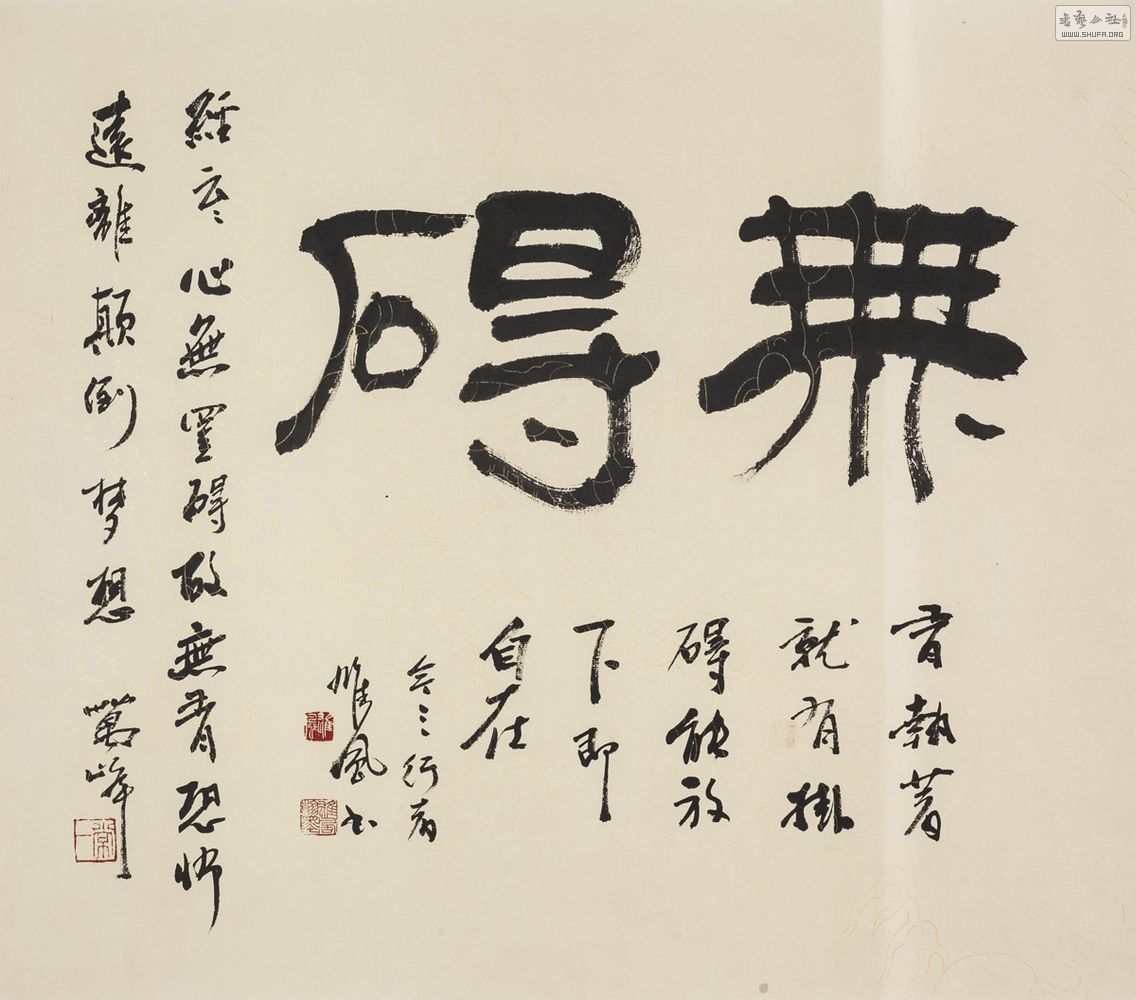 無礙
有執著
就有掛
礙能放
下即
自在
行者
雅風書
經云心無罣礙故無有恐怖
遠離顛倒梦想 萬峰
書藝公社
WWW.SHUFA.ORG